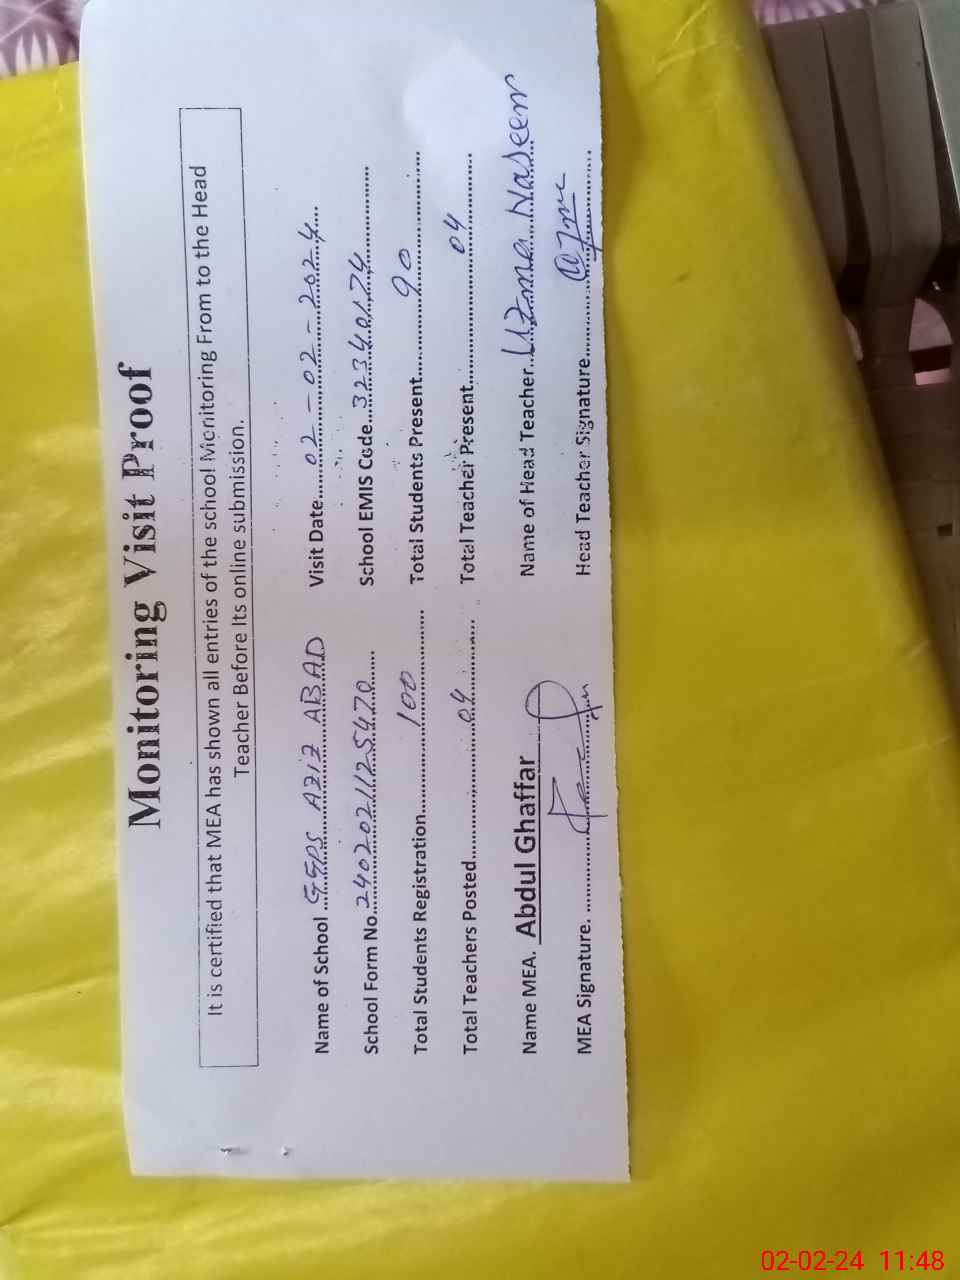 Monitoring Visit Proof
It is certified that MEA has shown all entries of the school Monitoring From to the Head
Teacher Before Its online submission.
Name of School GGPS AZIZ ABAD Visit Date 02-02-2024
School Form No. 2402021125470 School EMIS Code 32340174
Total Students Registration 100 Total Students Present 90
Total Teachers Posted 04 Total Teacher Present 04
Name MEA. Abdul Ghaffar Name of Head Teacher. Uzma Naseem
MEA Signature. Head Teacher Signature
02-02-24 11:48